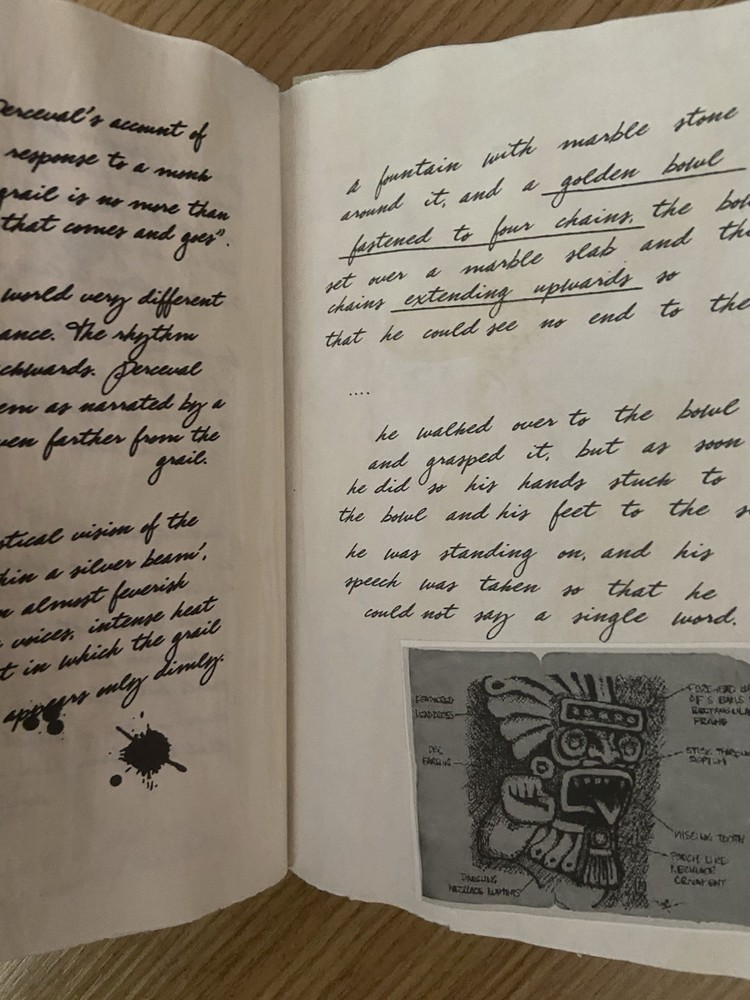 Perceval's account of
response to a monk
grail is no more than
that comes and goes".
world very different
ance. The rhythm
ckwards. Perceval
em as narrated by a
ven farther from the
grail.
stical vision of the
hin a silver beam',
n almost feverish
voices, intense heat
t in which the grail
appears only dimly.
a fountain with marble stone
around it, and a golden bowl
fastened to four chains, the bow
set over a marble slab and the
chains extending upwards so
that he could see no end to the
....
he walked over to the bowl
and grasped it, but as soon
he did so his hands stuck to
the bowl and his feet to the s
he was standing on, and his
speech was taken so that he
could not say a single word.
FEATHERED
HEADDRESS
DISC
EARRING
DANGLING
NECKLACE
FOREHEAD
OF 5 BALLS
RECTANGULA
FRAME
STICK THROUGH
SEPTUM
MISSING TOOTH
POUCH LIKE
NECKLACE
ORNAMENT